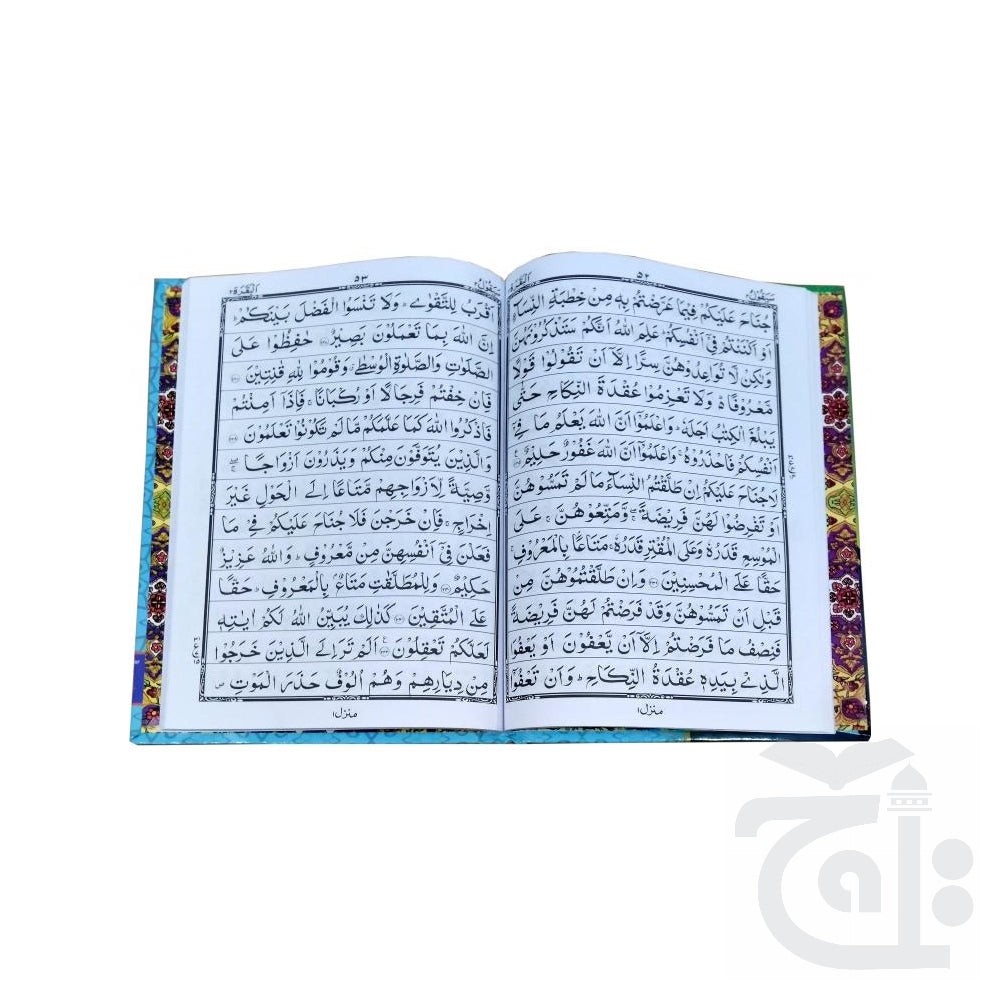 سَيَقُوْلُ ٢
٥٢
اَلْبَقَرَة ٢
جُنَاحَ عَلَيْكُمْ فِيْمَا عَرَّضْتُمْ بِهٖ مِنْ خِطْبَةِ النِّسَآءِ
اَوْ اَكْنَنْتُمْ فِيْٓ اَنْفُسِكُمْ ؕ عَلِمَ اللّٰهُ اَنَّكُمْ سَتَذْكُرُوْنَهُنَّ
وَلٰكِنْ لَّا تُوَاعِدُوْهُنَّ سِرًّا اِلَّآ اَنْ تَقُوْلُوْا قَوْلًا
مَّعْرُوْفًا ؕ۬ وَلَا تَعْزِمُوْا عُقْدَةَ النِّكَاحِ حَتّٰى
يَبْلُغَ الْكِتٰبُ اَجَلَهٗ ؕ وَاعْلَمُوْٓا اَنَّ اللّٰهَ يَعْلَمُ مَا فِيْٓ
اَنْفُسِكُمْ فَاحْذَرُوْهُ ۚ وَاعْلَمُوْٓا اَنَّ اللّٰهَ غَفُوْرٌ حَلِيْمٌ
لَا جُنَاحَ عَلَيْكُمْ اِنْ طَلَّقْتُمُ النِّسَآءَ مَا لَمْ تَمَسُّوْهُنَّ
اَوْ تَفْرِضُوْا لَهُنَّ فَرِيْضَةً ۖۚ وَّمَتِّعُوْهُنَّ ۚ عَلَى
الْمُوْسِعِ قَدَرُهٗ وَعَلَى الْمُقْتِرِ قَدَرُهٗ ۚ مَتَاعًا ۢ بِالْمَعْرُوْفِ ۚ
حَقًّا عَلَى الْمُحْسِنِيْنَ وَاِنْ طَلَّقْتُمُوْهُنَّ مِنْ
قَبْلِ اَنْ تَمَسُّوْهُنَّ وَقَدْ فَرَضْتُمْ لَهُنَّ فَرِيْضَةً
فَنِصْفُ مَا فَرَضْتُمْ اِلَّآ اَنْ يَّعْفُوْنَ اَوْ يَعْفُوَا
الَّذِيْ بِيَدِهٖ عُقْدَةُ النِّكَاحِ ؕ وَاَنْ تَعْفُوْٓا
منزل ١
سَيَقُوْلُ ٢
٥٣
اَلْبَقَرَة ٢
اَقْرَبُ لِلتَّقْوٰى ؕ وَلَا تَنْسَوُا الْفَضْلَ بَيْنَكُمْ ؕ
اِنَّ اللّٰهَ بِمَا تَعْمَلُوْنَ بَصِيْرٌ حٰفِظُوْا عَلَى
الصَّلَوٰتِ وَالصَّلٰوةِ الْوُسْطٰى ۗ وَقُوْمُوْا لِلّٰهِ قٰنِتِيْنَ
فَاِنْ خِفْتُمْ فَرِجَالًا اَوْ رُكْبَانًا ۚ فَاِذَآ اَمِنْتُمْ
فَاذْكُرُوا اللّٰهَ كَمَا عَلَّمَكُمْ مَّا لَمْ تَكُوْنُوْا تَعْلَمُوْنَ
وَالَّذِيْنَ يُتَوَفَّوْنَ مِنْكُمْ وَيَذَرُوْنَ اَزْوَاجًا ۖۚ
وَّصِيَّةً لِّاَزْوَاجِهِمْ مَّتَاعًا اِلَى الْحَوْلِ غَيْرَ
اِخْرَاجٍ ۚ فَاِنْ خَرَجْنَ فَلَا جُنَاحَ عَلَيْكُمْ فِيْ مَا
فَعَلْنَ فِيْٓ اَنْفُسِهِنَّ مِنْ مَّعْرُوْفٍ ؕ وَاللّٰهُ عَزِيْزٌ
حَكِيْمٌ وَلِلْمُطَلَّقٰتِ مَتَاعٌ ۢ بِالْمَعْرُوْفِ ؕ حَقًّا
عَلَى الْمُتَّقِيْنَ كَذٰلِكَ يُبَيِّنُ اللّٰهُ لَكُمْ اٰيٰتِهٖ
لَعَلَّكُمْ تَعْقِلُوْنَ اَلَمْ تَرَ اِلَى الَّذِيْنَ خَرَجُوْا
مِنْ دِيَارِهِمْ وَهُمْ اُلُوْفٌ حَذَرَ الْمَوْتِ ۪
منزل ١